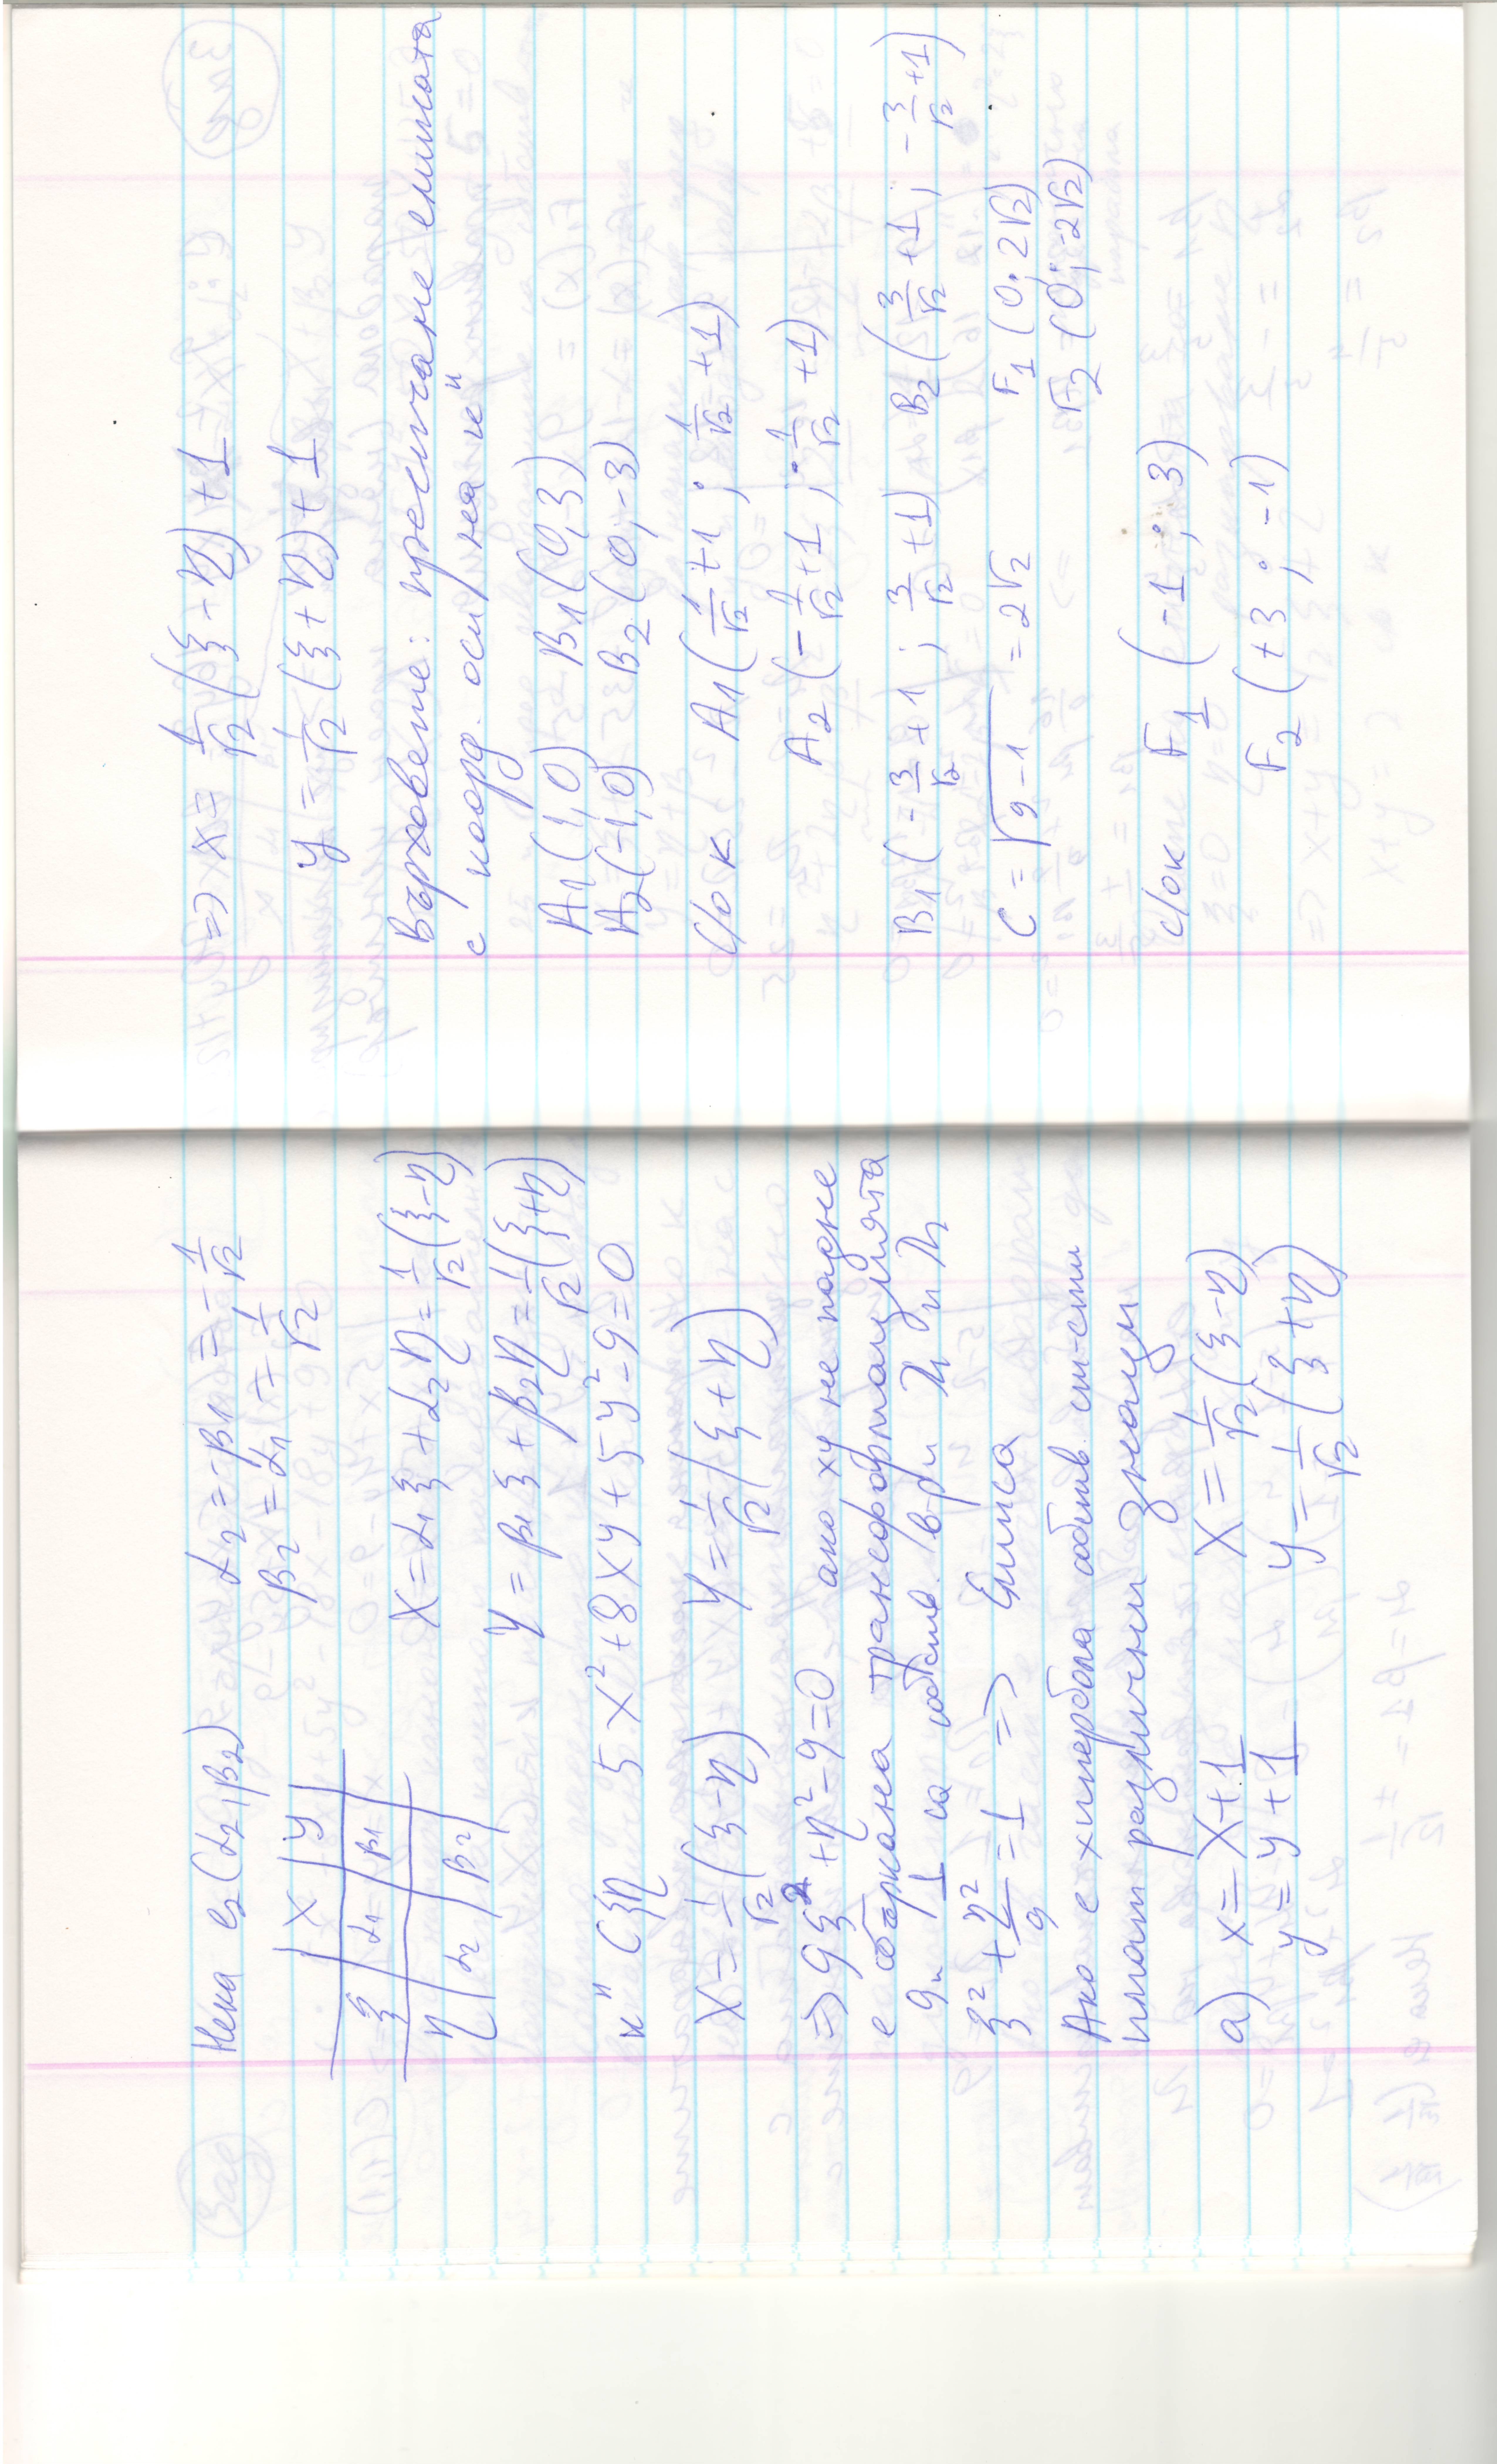 Нека e₂(α₂, β₂) α₂ = -β₁ = -1/√2
β₂ = α₁ = 1/√2
| x | y
ξ | α₁ | β₁
η | α₂ | β₂
X = α₁ξ + α₂η = 1/√2 (ξ-η)
Y = β₁ξ + β₂η = 1/√2 (ξ+η)
K" Cξη 5x² + 8xy + 5y² - 9 = 0
X = 1/√2 (ξ-η) Y = 1/√2 (ξ+η)
=> 9ξ² + η² - 9 = 0 ако xy не падне
е объркана трансформацията
9 и 1 са собств. в-ри λ₁ и λ₂
ξ² + η²/9 = 1 => Елипса
Ако е хипербола собств. ст-сти
имат различни знаци
а) x = X+1 X = 1/√2 (ξ-η)
y = y+1 y = 1/√2 (ξ+η)
=> x = 1/√2 (ξ-η) + 1
y = 1/√2 (ξ+η) + 1
Върховете: пресичане елипсата
с коорд. оси на к"
A₁(1,0) B₁(0,3)
A₂(-1,0) B₂(0,-3)
с/о к A₁(1/√2 +1 ; 1/√2 +1)
A₂(-1/√2 +1 ; -1/√2 +1)
B₁(-3/√2 +1 ; 3/√2 +1) B₂(3/√2 +1 ; -3/√2 +1)
C = √9-1 = 2√2 F₁(0; 2√2)
F₂(0; -2√2)
с/о к F₁(-1 ; 3)
F₂(+3 ; -1)